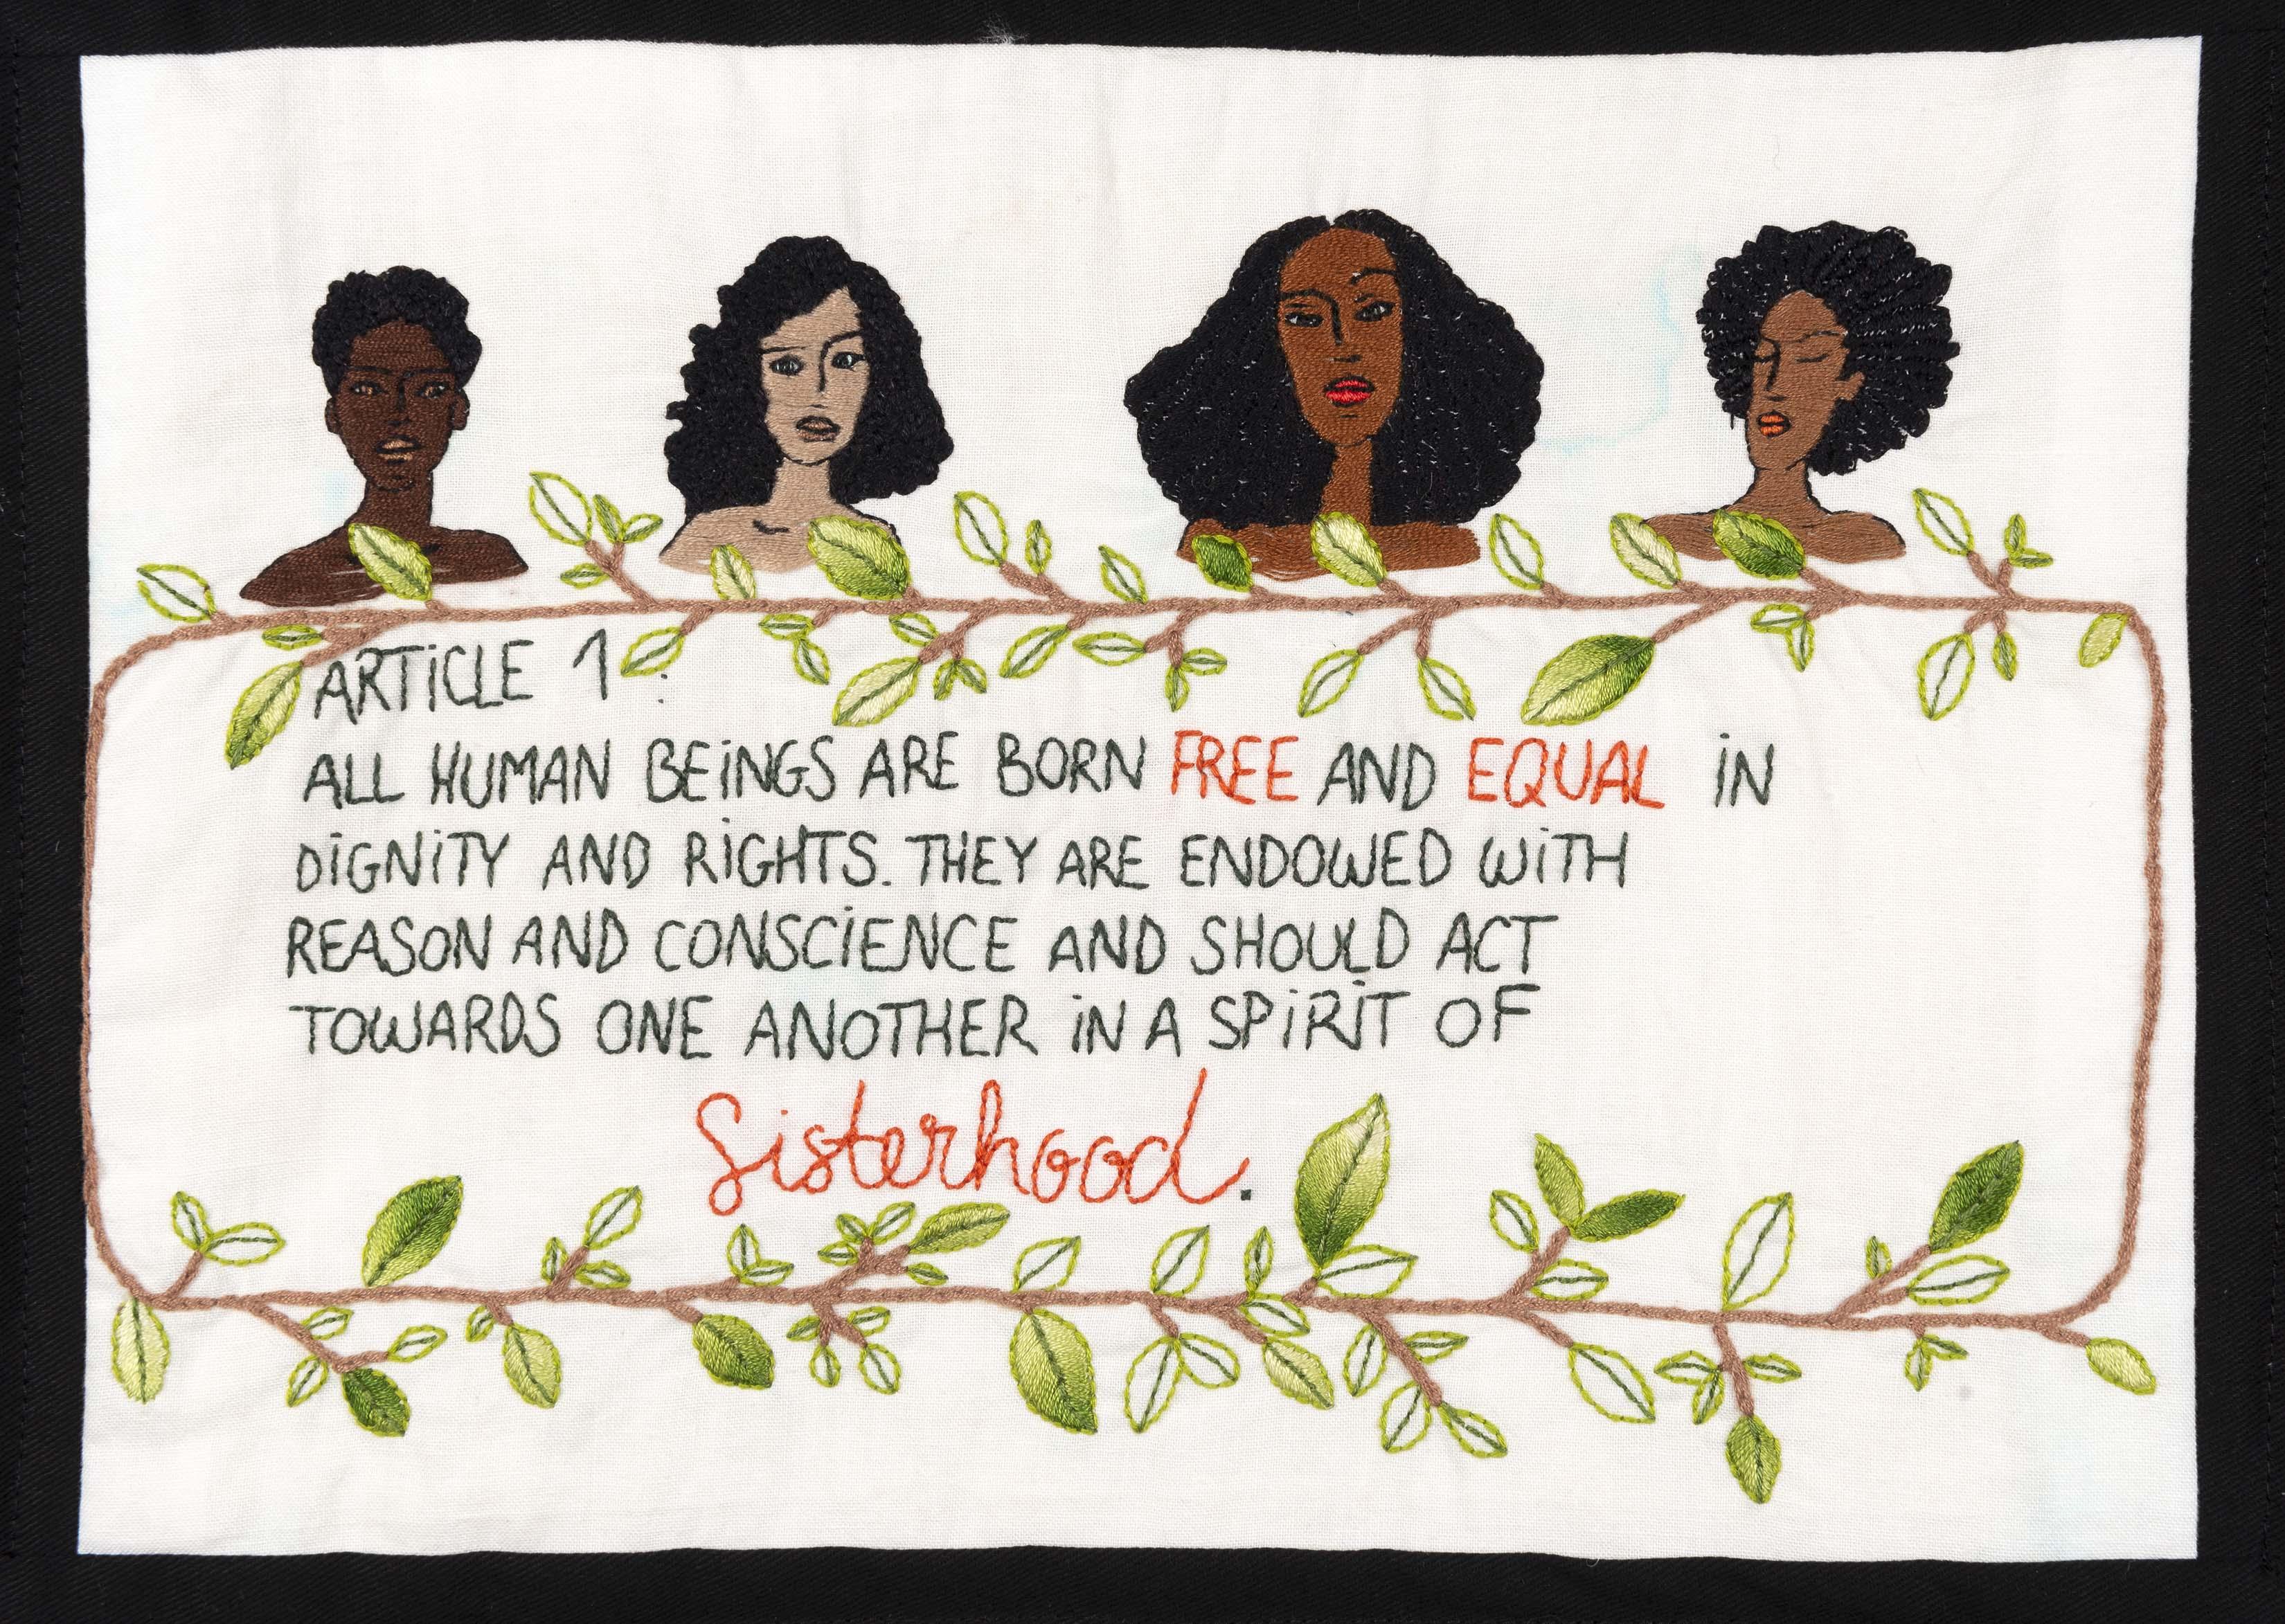 ARTiCLE 1 :
ALL HUMAN BEiNGS ARE BORN FREE AND EQUAL iN
DiGNiTY AND RiGHTS. THEY ARE ENDOWED WiTH
REASON AND CONSCiENCE AND SHOULD ACT
TOWARDS ONE ANOTHER iN A SPiRiT OF
Sisterhood.